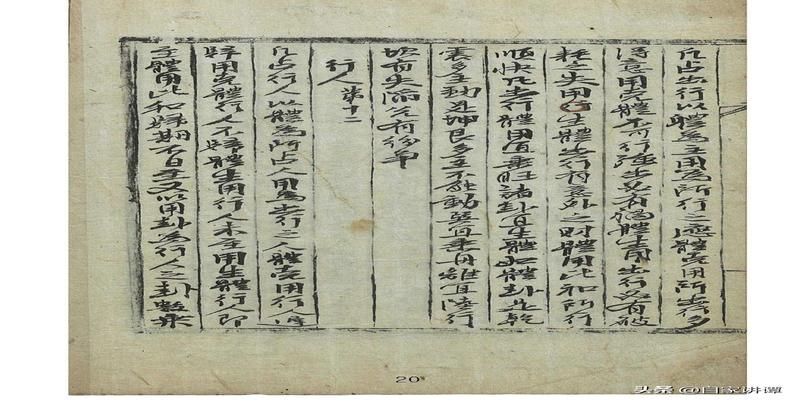 凡占出行以體為主用為所行之應體克用所出行多
得意用克體不可行強出必有禍體生用出行必有破
耗失用生體出行有意外之財體用比和所行
順快凡出行體用宜乘旺諸卦宜生體如體卦是乾
震多主動坤艮多主不能動巽宜乘舟離宜陸行
坎有失陷兌有紛爭
行人第十二
凡占行人以體為所占人用為出行之人體克用行人
歸用克體行人不歸體生用行人未至用生體行人即
至體用比和歸期不日至又以用卦為行人之卦
20
头条 @自家讲谭